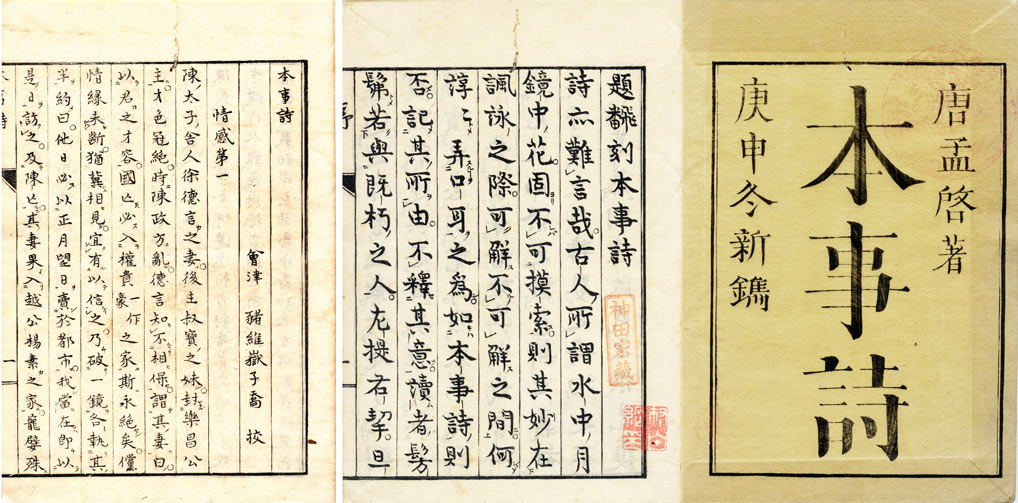 唐孟啓著
本事詩
庚申冬新鐫
題飜刻本事詩
詩亦難言哉古人所謂水中月
鏡中花固不可摸索則其妙在
諷詠之際可解不可解之間何
諄〻弄口耳之爲如本事詩則
否記其所由不釋其意讀者髣
髴若與既朽之人左提右挈旦
序
神田家藏
本事詩
會津 豬維嶽子喬 挍
情感第一
陳太子舍人徐德言之妻後主叔寶之妹封樂昌公
主才色冠絕時陳政方亂德言知不相保謂其妻曰
以君之才容國亡必入權貴一作豪之家斯永絕矣儻
情緣未斷猶冀相見宜有以信之乃破一鏡各執其
半約曰他日必以正月望日賣於都市我當在即以
是日訪之及陳亡其妻果入越公楊素之家寵嬖殊
一